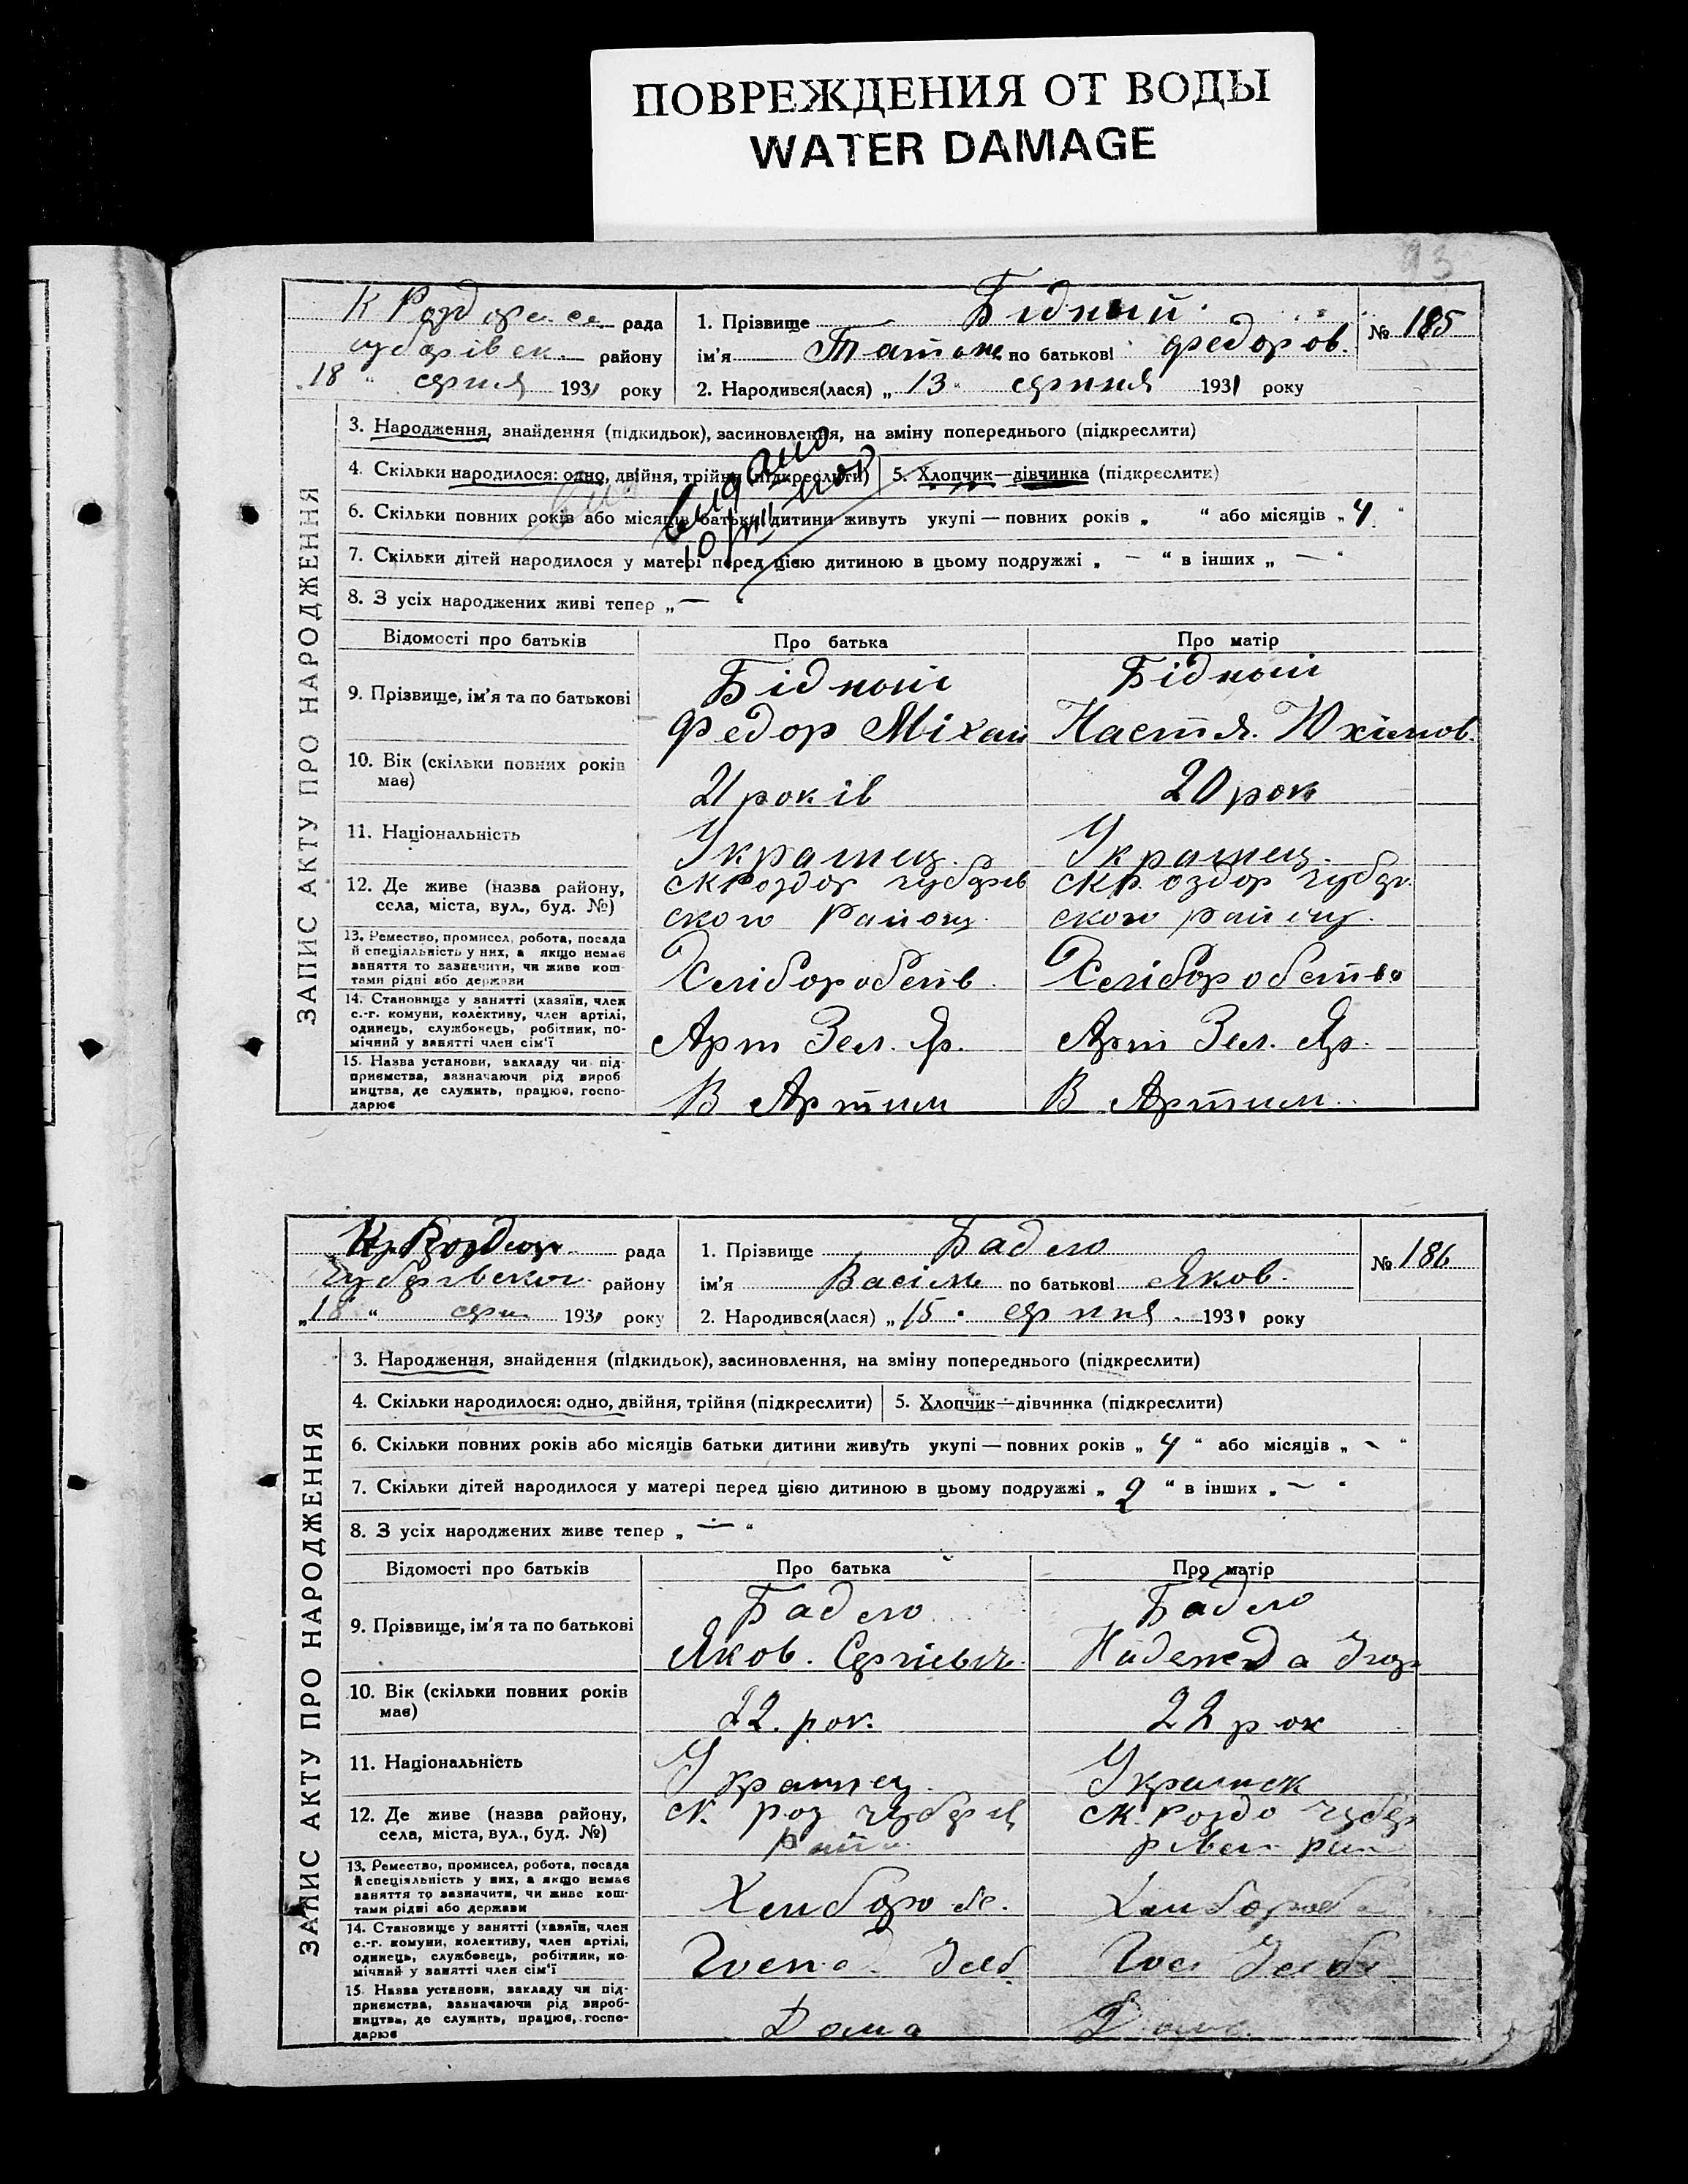 ПОВРЕЖДЕНИЯ ОТ ВОДЫ
WATER DAMAGE
93
рада
району
18 " серпня 1931 року
1. Прізвище Бідний
ім'я Татьяна по батькові Федоров.
№ 185
2. Народився(лася) „ 13 " серпня 1931 року
ЗАПИС АКТУ ПРО НАРОДЖЕННЯ
3. Народження, знайдення (підкидьок), засиновлення, на зміну попереднього (підкреслити)
4. Скільки народилося: одно, двійня, трійня (підкреслити) 5. Хлопчик—дівчинка (підкреслити)
6. Скільки повних років або місяців батьки дитини живуть укупі — повних років „ " або місяців „ 4 "
7. Скільки дітей народилося у матері перед цією дитиною в цьому подружжі „ — " в інших „ — "
8. З усіх народжених живі тепер „ —
видано
Відомості про батьків Про батька Про матір
9. Прізвище, ім'я та по батькові
Бідний Бідной
Федор Міхай Настя. Юхимов.
10. Вік (скільки повних років має)
21 років 20 рок
11. Національність
Украинец. Украинец.
12. Де живе (назва району, села, міста, вул., буд. №)
ского району. ского району.
13. Ремество, промисел, робота, посада й спеціяльність у них, а якщо немає заняття то зазначити, чи живе коштами рідні або держави
Хлібороб­ств. Хліборобство
14. Становище у занятті (хазяїн, член с.-г. комуни, колективу, член артілі, одинець, службовець, робітник, помічний у занятті член сім'ї
Арт Зел. Яр. Арт Зел. Яр.
15. Назва установи, закладу чи підприємства, зазначаючи рід виробництва, де служить, працює, господарює
В Артили В Артили
рада
району
„ 18 " серп. 1931 року
1. Прізвище Бадло
ім'я Васіль по батькові Яков.
№ 186
2. Народився(лася) „ 15 " серпня 1931 року
ЗАПИС АКТУ ПРО НАРОДЖЕННЯ
3. Народження, знайдення (підкидьок), засиновлення, на зміну попереднього (підкреслити)
4. Скільки народилося: одно, двійня, трійня (підкреслити) 5. Хлопчик—дівчинка (підкреслити)
6. Скільки повних років або місяців батьки дитини живуть укупі — повних років „ 4 " або місяців „ - "
7. Скільки дітей народилося у матері перед цією дитиною в цьому подружжі „ 2 " в інших „ — "
8. З усіх народжених живе тепер „ — "
Відомості про батьків Про батька Про матір
9. Прізвище, ім'я та по батькові
Бадло Бадло
Яков. Сергієвич. Надежда
10. Вік (скільки повних років має)
22. рок. 22 рок
11. Національність
Украинец. Украинск
12. Де живе (назва району, села, міста, вул., буд. №)
13. Ремество, промисел, робота, посада й спеціяльність у них, а якщо немає заняття то зазначити, чи живе коштами рідні або держави
14. Становище у занятті (хазяїн, член с.-г. комуни, колективу, член артілі, одинець, службовець, робітник, помічний у занятті член сім'ї
15. Назва установи, закладу чи підприємства, зазначаючи рід виробництва, де служить, працює, господарює
Дома